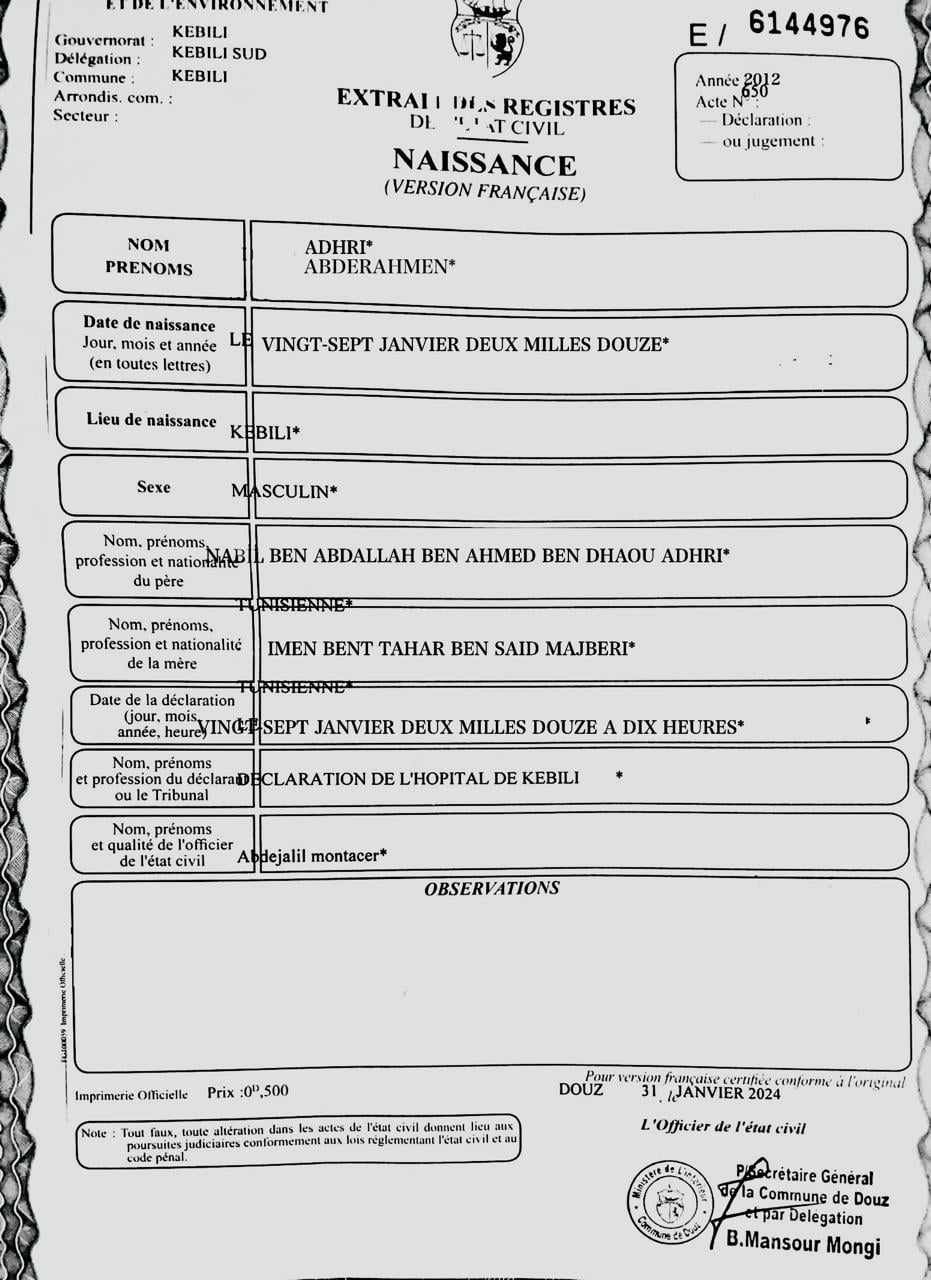 ET DE L'ENVIRONNEMENT
Gouvernorat : KEBILI
Délégation : KEBILI SUD
Commune : KEBILI
Arrondis. com. :
Secteur :
E / 6144976
Année 2012
Acte N° : 650
— Déclaration :
— ou jugement :
EXTRAIT DES REGISTRES
DE L'ETAT CIVIL
NAISSANCE
(VERSION FRANÇAISE)
NOM ADHRI*
PRENOMS ABDERAHMEN*
Date de naissance
Jour, mois et année
(en toutes lettres)
LE VINGT-SEPT JANVIER DEUX MILLES DOUZE*
Lieu de naissance
KEBILI*
Sexe
MASCULIN*
Nom, prénoms,
profession et nationalité
du père
NABIL BEN ABDALLAH BEN AHMED BEN DHAOU ADHRI*
TUNISIENNE*
Nom, prénoms,
profession et nationalité
de la mère
IMEN BENT TAHAR BEN SAID MAJBERI*
TUNISIENNE*
Date de la déclaration
(jour, mois,
année, heure)
VINGT-SEPT JANVIER DEUX MILLES DOUZE A DIX HEURES* *
Nom, prénoms
et profession du déclarant
ou le Tribunal
DECLARATION DE L'HOPITAL DE KEBILI *
Nom, prénoms
et qualité de l'officier
de l'état civil
Abdejalil montacer*
OBSERVATIONS
Imprimerie Officielle
Imprimerie Officielle Prix :0ᴰ,500
Pour version française certifiée conforme à l'original
DOUZ le 31 JANVIER 2024
L'Officier de l'état civil
Note : Tout faux, toute altération dans les actes de l'état civil donnent lieu aux
poursuites judiciaires conformement aux lois réglementant l'état civil et au
code pénal.
Ministère de L'interieur
Commune de Douz
P/Secrétaire Général
de la Commune de Douz
et par Délégation
B.Mansour Mongi